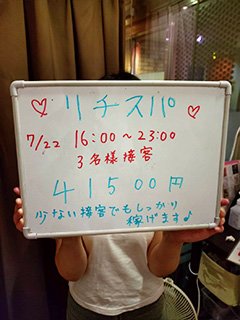 ♡ リチスパ ♡
7/22 16:00～23:00
3名様接客
41500円
少ない接客でもしっかり
稼げます♪